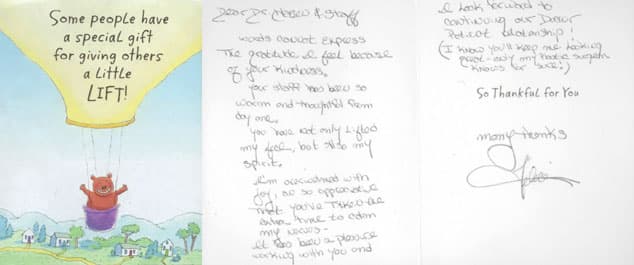 Some people have
a special gift
for giving others
a little
LIFT!
Dear Dr. & Staff
words cannot express
The gratitude I feel because
of your kindness.
your staff has been so
warm and thoughtful from
day one.
you have not only lifted
my face, but also my
spirit.
I'm overjoyed with
joy, so so appreciative
that you've taken the
extra time to
my
It has been a pleasure
working with you and
I look forward to
continuing our Doctor
Patient relationship!
(I know you'll keep me looking
great - only my plastic surgeon
knows for sure!)
So Thankful for You
many thanks